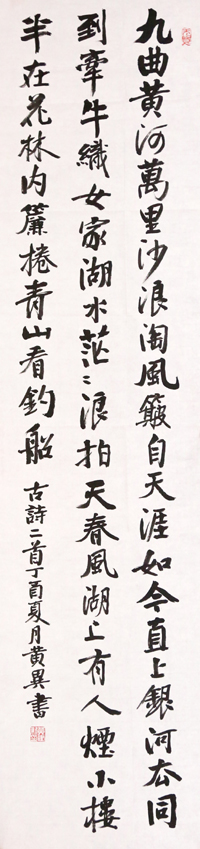 九曲黄河萬里沙浪淘風簸自天涯如今直上銀河去同
到牽牛織女家湖水茫〻浪拍天春風湖上有人煙小樓
半在花林内簾捲青山看釣船 古詩二首丁酉夏月黄異書